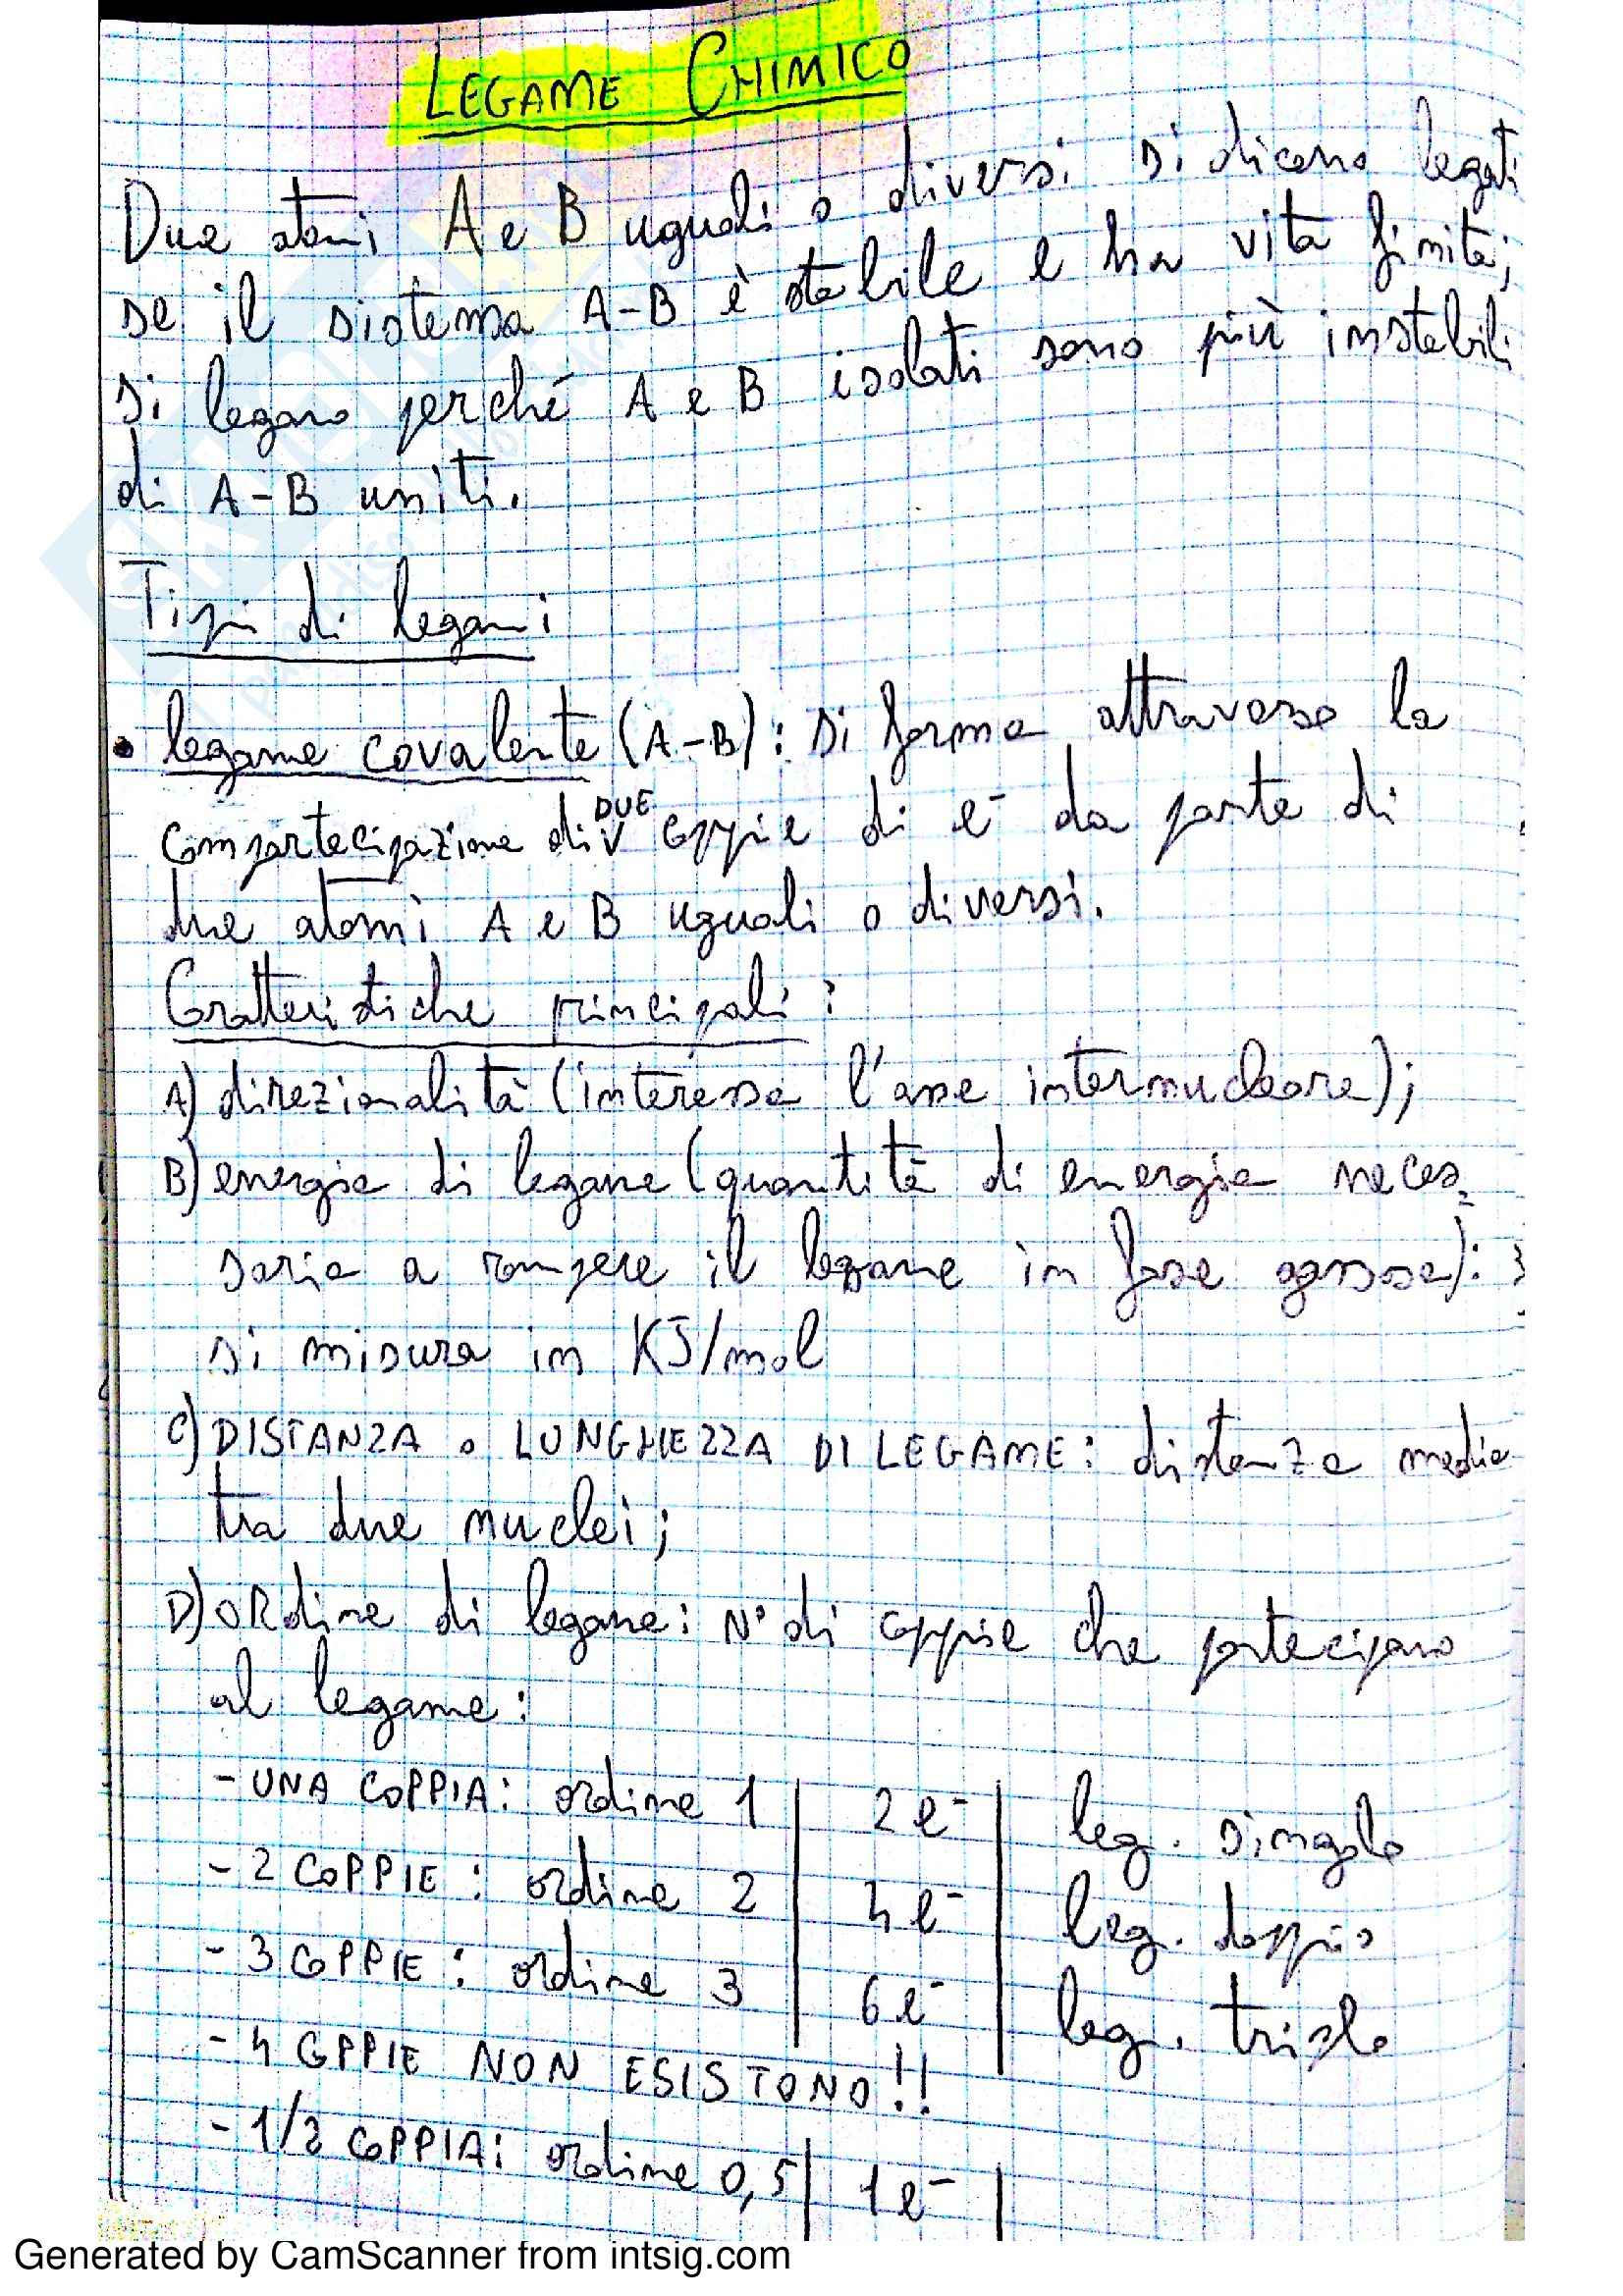 LEGAME CHIMICO
Due atomi A e B uguali o diversi si dicono legati
se il sistema A-B è stabile e ha vita finita;
si legano perché A e B isolati sono più instabili
di A-B uniti.
Tipi di legami
• legame covalente (A-B): si forma attraverso la
compartecipazione di DUE coppie di e⁻ da parte di
due atomi A e B uguali o diversi.
Caratteristiche principali:
A) direzionalità (interessa l'asse internucleare);
B) energia di legame (quantità di energia neces=
saria a rompere il legame in fase gassosa):
si misura in KJ/mol
C) DISTANZA o LUNGHEZZA DI LEGAME: distanza media
tra due nuclei;
D) ORdine di legame: N° di coppie che partecipano
al legame:
- UNA COPPIA: ordine 1 | 2e⁻ | leg. singolo
- 2 COPPIE: ordine 2 | 4e⁻ | leg. doppio
- 3 COPPIE: ordine 3 | 6e⁻ | leg. triplo
- 4 COPPIE NON ESISTONO!!
- 1/2 COPPIA: ordine 0,5 | 1e⁻ |
Generated by CamScanner from intsig.com